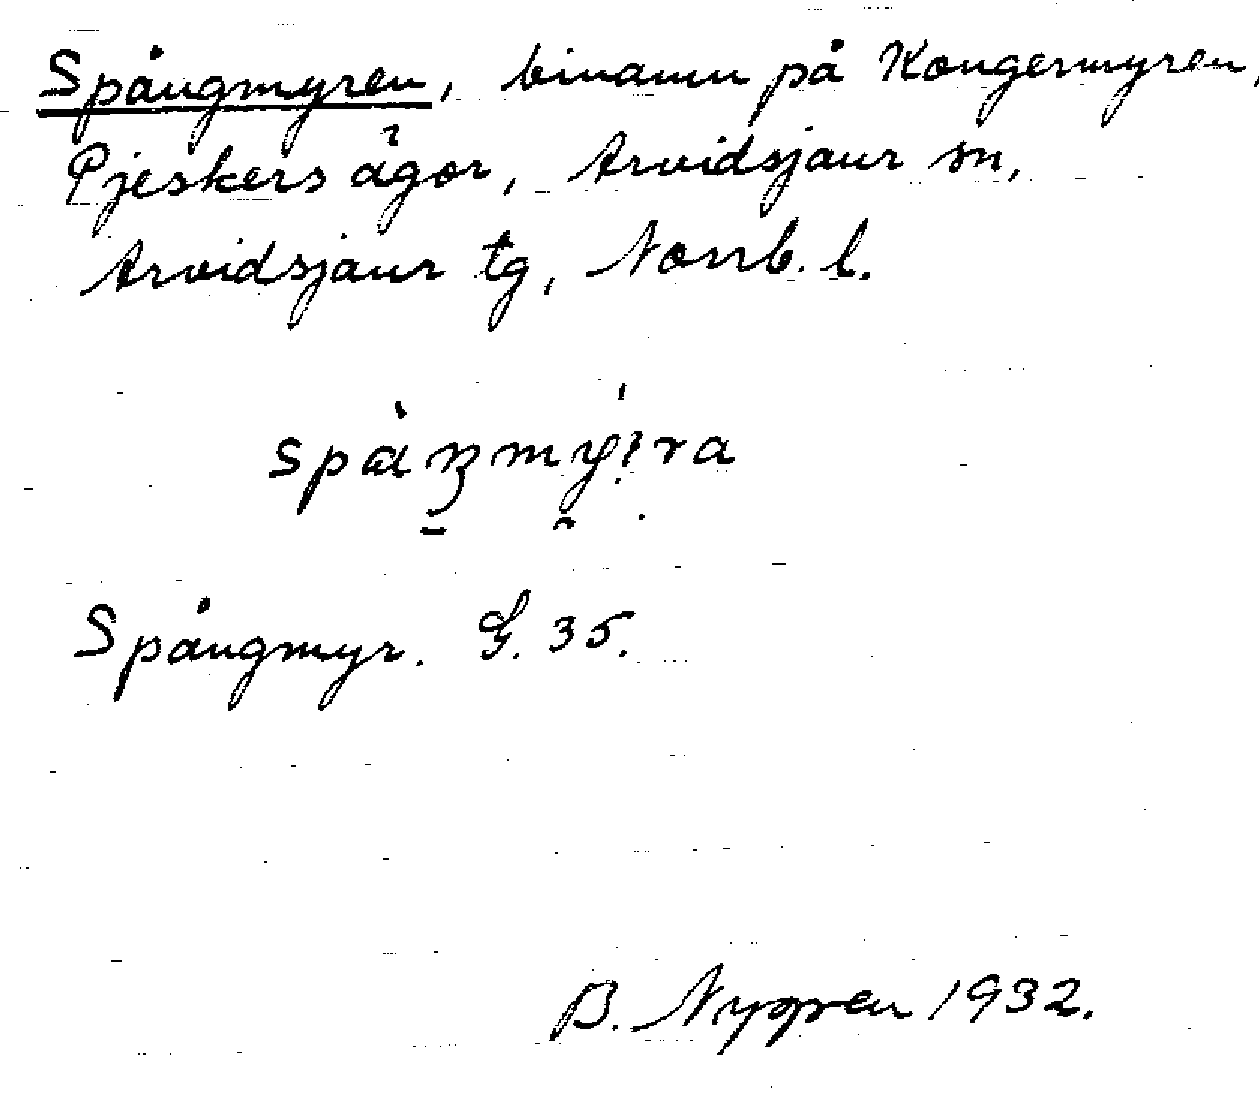 Spångmyren, binamn på Kougermyren,
Pjeskers ägor, Arvidsjaur sn,
Arvidsjaur tg, Norrb. l.
Spångmyr. G. 35.
B. Nygren 1932.